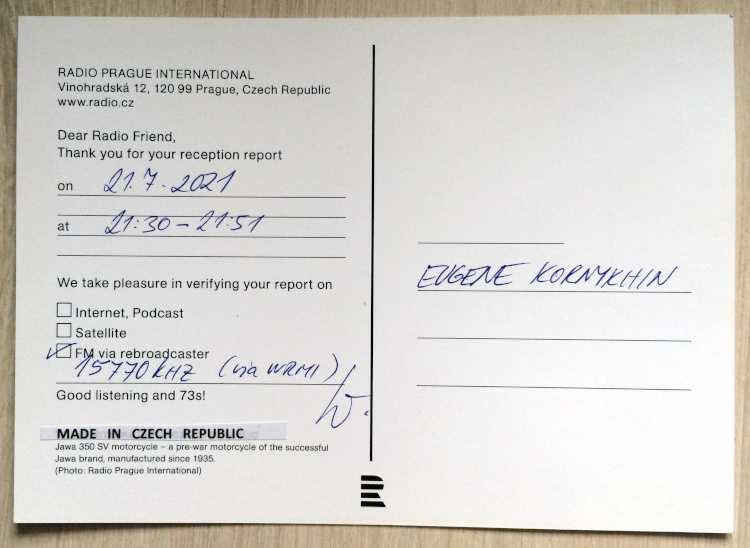 RADIO PRAGUE INTERNATIONAL
Vinohradská 12, 120 99 Prague, Czech Republic
www.radio.cz
Dear Radio Friend,
Thank you for your reception report
on 21.7.2021
at 21:30-21:51
We take pleasure in verifying your report on
Internet, Podcast
Satellite
FM via rebroadcaster
15770 kHz (via WRMI)
Good listening and 73s!
MADE IN CZECH REPUBLIC
Jawa 350 SV motorcycle – a pre-war motorcycle of the successful
Jawa brand, manufactured since 1935.
(Photo: Radio Prague International)
EUGENE KORNYKHIN